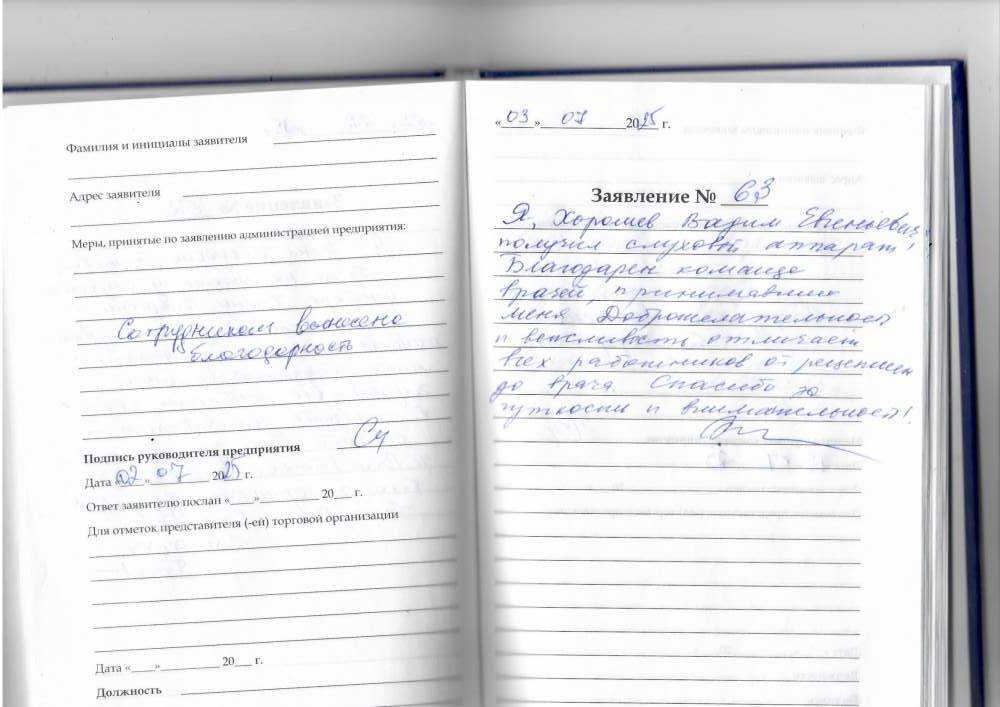 Фамилия и инициалы заявителя
Адрес заявителя
Меры, принятые по заявлению администрацией предприятия:
Сотрудникам вынесена
благодарность
Подпись руководителя предприятия
Дата «02» 07 2025 г.
Ответ заявителю послан «___»_________ 20___ г.
Для отметок представителя (-ей) торговой организации
Дата «___»_________ 20___ г.
Должность
«03» 07 2025 г.
Заявление № 63
Я, Хорошев Вадим Евгеньевич,
получил слуховой аппарат!
Благодарен команде
врачей, принимавших
меня Доброжелательность
и вежливость отличает
всех работников от рецепшен
до врача Спасибо за
чуткость и внимательность!